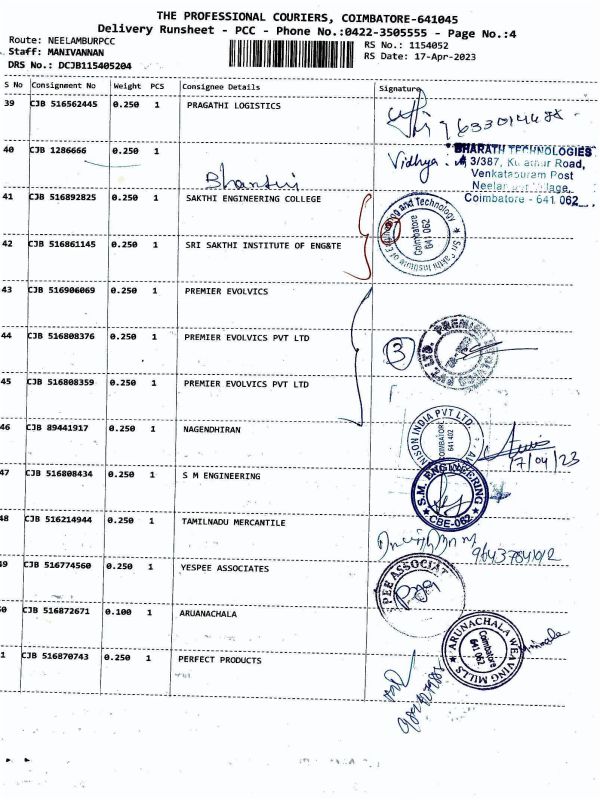 THE PROFESSIONAL COURIERS, COIMBATORE-641045
Delivery Runsheet - PCC - Phone No.:0422-3505555 - Page No.:4
Route: NEELAMBURPCC
Staff: MANIVANNAN
DRS No.: DCJB115405204
RS No.: 1154052
RS Date: 17-Apr-2023
S No Consignment No Weight PCS Consignee Details Signature
39 CJB 516562445 0.250 1 PRAGATHI LOGISTICS
40 CJB 1286666 0.250 1
Vidhya
BHARATH TECHNOLOGIES
3/387, Road,
Venkatapuram Post
Neelambur Village,
Coimbatore - 641 062
41 CJB 516892825 0.250 1 SAKTHI ENGINEERING COLLEGE
42 CJB 516861145 0.250 1 SRI SAKTHI INSTITUTE OF ENG&TE
Sri Sakthi Institute of Engineering and Technology
Coimbatore
641 062
43 CJB 516906069 0.250 1 PREMIER EVOLVICS
44 CJB 516808376 0.250 1 PREMIER EVOLVICS PVT LTD
3
PREMIER EVOLVICS PVT. LTD.
45 CJB 516808359 0.250 1 PREMIER EVOLVICS PVT LTD
46 CJB 89441917 0.250 1 NAGENDHIRAN
INDIA PVT LTD.
COIMBATORE
641 402
17/04/23
47 CJB 516808434 0.250 1 S M ENGINEERING
S.M. ENGINEERING
CBE-062
48 CJB 516214944 0.250 1 TAMILNADU MERCANTILE
49 CJB 516774560 0.250 1 YESPEE ASSOCIATES
PEE ASSOCIAT
50 CJB 516872671 0.100 1 ARUANACHALA
ARUNACHALA WEAVING MILLS
Coimbatore
641 062
1 CJB 516870743 0.250 1 PERFECT PRODUCTS